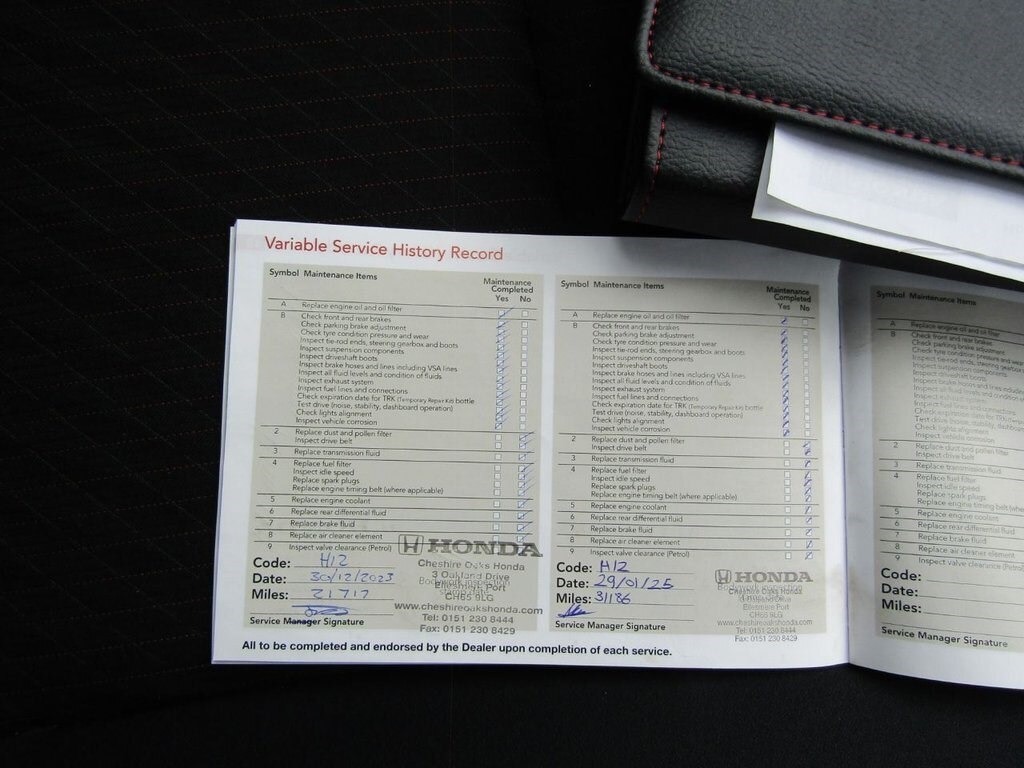 Variable Service History Record
Symbol Maintenance Items
Maintenance
Completed
Yes No
A Replace engine oil and oil filter
B Check front and rear brakes
Check parking brake adjustment
Check tyre condition pressure and wear
Inspect tie-rod ends, steering gearbox and boots
Inspect suspension components
Inspect driveshaft boots
Inspect brake hoses and lines including VSA lines
Inspect all fluid levels and condition of fluids
Inspect exhaust system
Inspect fuel lines and connections
Check expiration date for TRK (Temporary Repair Kit) bottle
Test drive (noise, stability, dashboard operation)
Check lights alignment
Inspect vehicle corrosion
2 Replace dust and pollen filter
Inspect drive belt
3 Replace transmission fluid
4 Replace fuel filter
Inspect idle speed
Replace spark plugs
Replace engine timing belt (where applicable)
5 Replace engine coolant
6 Replace rear differential fluid
7 Replace brake fluid
8 Replace air cleaner element
9 Inspect valve clearance (Petrol)
HONDA
Cheshire Oaks Honda
3 Oakland Drive
Ellesmere Port
CH65 9LG
www.cheshireoakshonda.com
Tel: 0151 230 8444
Fax: 0151 230 8429
Bodywork inspection
Code: H12
Date: 30/12/2023
Miles: 21717
Service Manager Signature
Symbol Maintenance Items
Maintenance
Completed
Yes No
A Replace engine oil and oil filter
B Check front and rear brakes
Check parking brake adjustment
Check tyre condition pressure and wear
Inspect tie-rod ends, steering gearbox and boots
Inspect suspension components
Inspect driveshaft boots
Inspect brake hoses and lines including VSA lines
Inspect all fluid levels and condition of fluids
Inspect exhaust system
Inspect fuel lines and connections
Check expiration date for TRK (Temporary Repair Kit) bottle
Test drive (noise, stability, dashboard operation)
Check lights alignment
Inspect vehicle corrosion
2 Replace dust and pollen filter
Inspect drive belt
3 Replace transmission fluid
4 Replace fuel filter
Inspect idle speed
Replace spark plugs
Replace engine timing belt (where applicable)
5 Replace engine coolant
6 Replace rear differential fluid
7 Replace brake fluid
8 Replace air cleaner element
9 Inspect valve clearance (Petrol)
HONDA
Bodywork inspection
Cheshire Oaks Honda
Ellesmere Port
CH65 9LG
www.cheshireoakshonda.com
Tel: 0151 230 8444
Fax: 0151 230 8429
Code: H12
Date: 29/01/25
Miles: 31186
Service Manager Signature
All to be completed and endorsed by the Dealer upon completion of each service.
Symbol Maintenance Items
A Replace engine oil and oil filter
B Check front and rear brakes
Check parking brake adjustment
Check tyre condition pressure and wear
Inspect tie-rod ends, steering gearbox
Inspect suspension components
Inspect driveshaft boots
Inspect brake hoses and lines
Inspect all fluid levels and
Inspect exhaust system
Inspect fuel lines and connections
Check expiration date for TRK
Test drive (noise, stability,
Check lights alignment
Inspect vehicle corrosion
2 Replace dust and pollen filter
Inspect drive belt
3 Replace transmission fluid
4 Replace fuel filter
Inspect idle speed
Replace spark plugs
Replace engine timing belt
5 Replace engine coolant
6 Replace rear differential fluid
7 Replace brake fluid
8 Replace air cleaner element
9 Inspect valve clearance (Petrol)
Code:
Date:
Miles:
Service Manager Signature